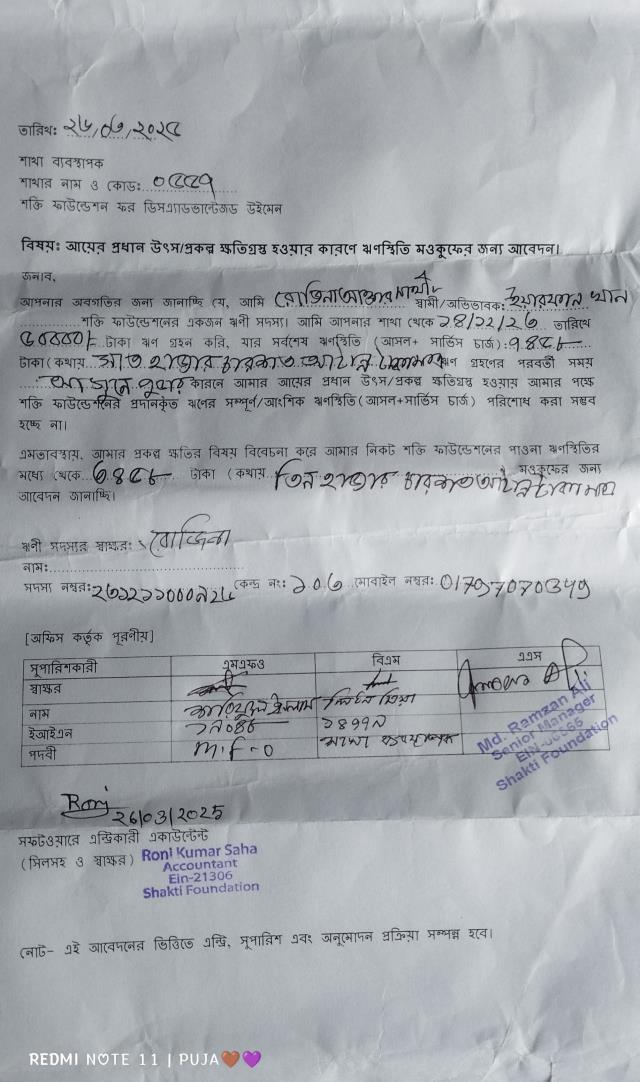 তারিখ: ২৬/০৩/২০২৫
শাখা ব্যবস্থাপক
শাখার নাম ও কোড: ০৫৫৭
শক্তি ফাউন্ডেশন ফর ডিসএ্যাডভান্টেজড উইমেন
বিষয়: আয়ের প্রধান উৎস/প্রকল্প ক্ষতিগ্রস্থ হওয়ার কারণে ঋণস্থিতি মওকুফের জন্য আবেদন।
জনাব,
আপনার অবগতির জন্য জানাচ্ছি যে, আমি স্বামী/অভিভাবক:
শক্তি ফাউন্ডেশনের একজন ঋণী সদস্য। আমি আপনার শাখা থেকে তারিখে
৫০০০০/- টাকা ঋণ গ্রহন করি, যার সর্বশেষ ঋণস্থিতি (আসল+ সার্ভিস চার্জ): ৭৪৫৮
টাকা (কথায় সাত হাজার চারশত আটান্ন টাকা মাত্র ঋণ গ্রহণের পরবর্তী সময়
আগুনে পুড়ার কারনে আমার আয়ের প্রধান উৎস/প্রকল্প ক্ষতিগ্রস্ত হওয়ায় আমার পক্ষে
শক্তি ফাউন্ডেশনের প্রদানকৃত ঋণের সম্পূর্ণ/আংশিক ঋণস্থিতি (আসল+সার্ভিস চার্জ) পরিশোধ করা সম্ভব
হচ্ছে না।
এমতাবস্থায়, আমার প্রকল্প ক্ষতির বিষয় বিবেচনা করে আমার নিকট শক্তি ফাউন্ডেশনের পাওনা ঋণস্থিতির
মধ্যে থেকে ৩৪৫৮ টাকা (কথায় তিন হাজার চারশত আটান্ন টাকা মাত্র মওকুফের জন্য
আবেদন জানাচ্ছি।
ঋণী সদস্যর স্বাক্ষর: রোজিনা
নাম:
সদস্য নম্বর: কেন্দ্র নং: ১০৬ মোবাইল নম্বর:
[অফিস কর্তৃক পূরণীয়]
সুপারিশকারী এমএফও বিএম এএম
স্বাক্ষর
নাম
ইআইএন
পদবী M.F-O শাখা ব্যবস্থাপক
Md. Ramzan Ali
Senior Manager
Shakti Foundation
Roni
26/03/2025
সফটওয়ারে এন্ট্রিকারী একাউন্টেন্ট
(সিলসহ ও স্বাক্ষর)
Roni Kumar Saha
Accountant
Ein-21306
Shakti Foundation
নোট- এই আবেদনের ভিত্তিতে এন্ট্রি, সুপারিশ এবং অনুমোদন প্রক্রিয়া সম্পন্ন হবে।
REDMI NOTE 11 | PUJA🤎💜